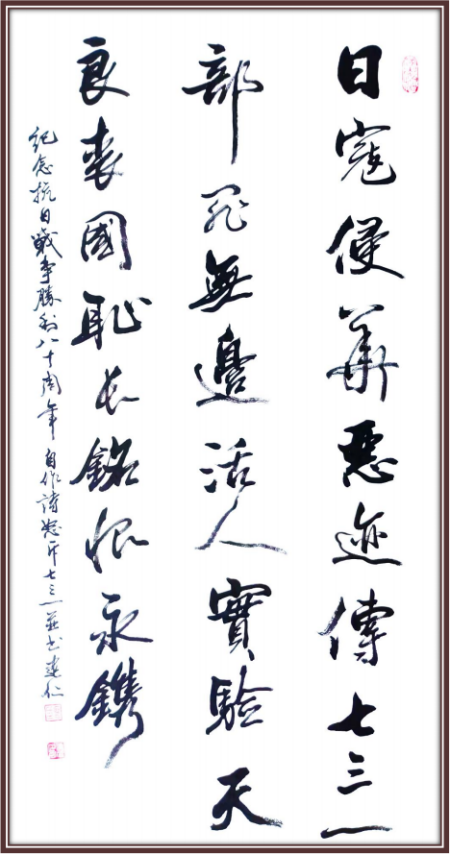 日寇侵華惡迹傳七三一
部罪無邊活人實驗天
良喪國恥長銘恨永鐫
紀念抗日戰爭勝利八十周年 自作詩怒斥七三一并書